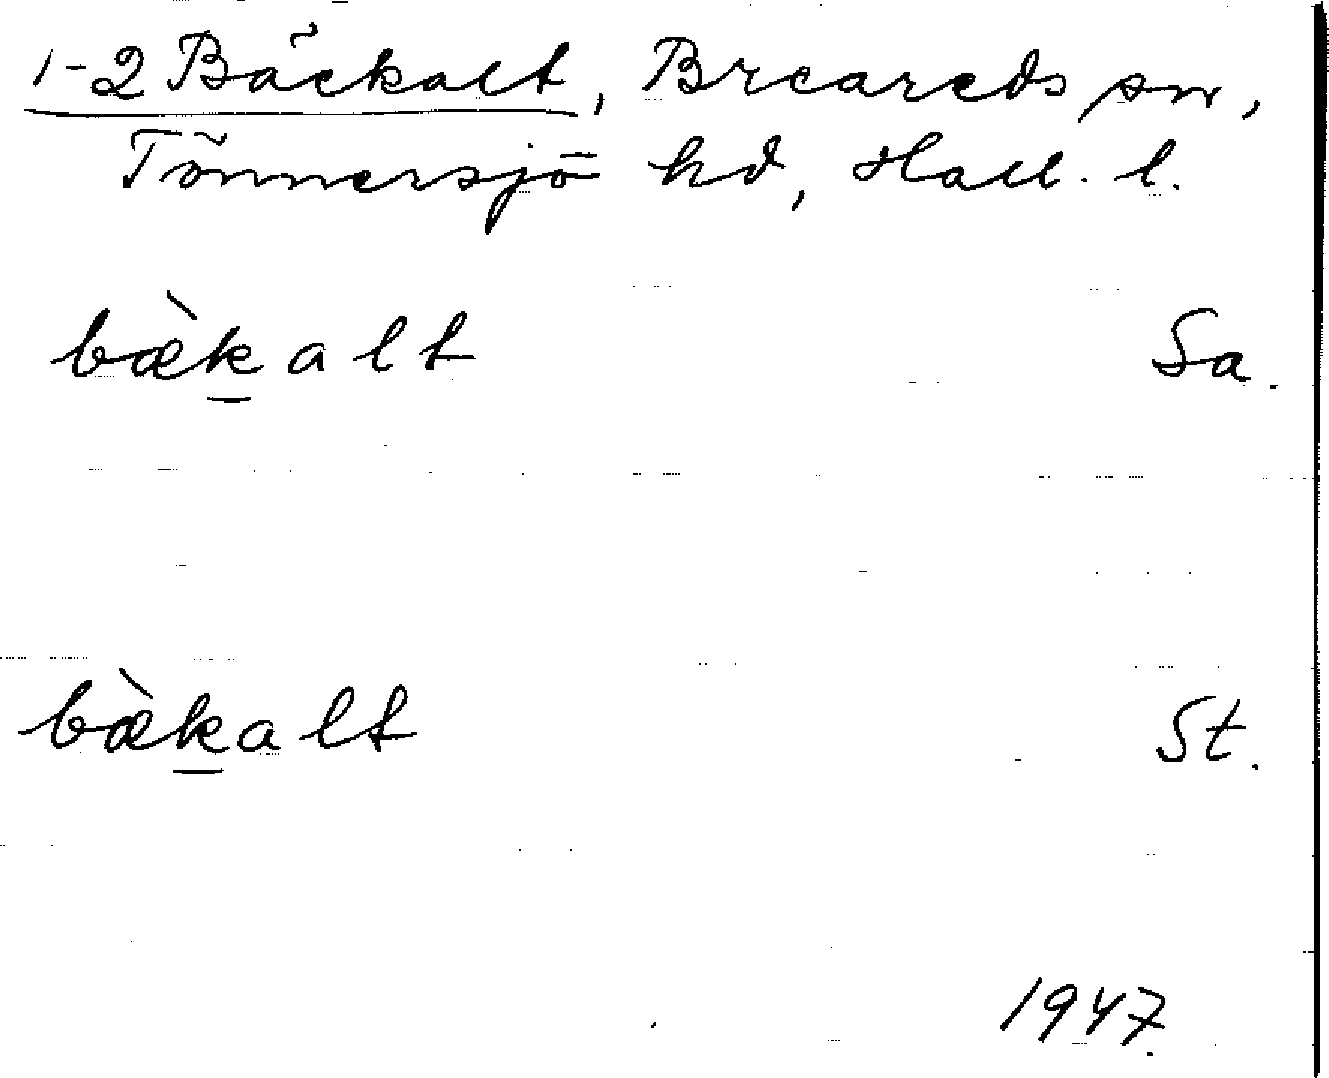 1-2 Bäckalt, Breareds sn,
Tönnersjö hd, Hall. l.
bæ̀k̲alt Sa.
bæ̀k̲alt St.
1947.